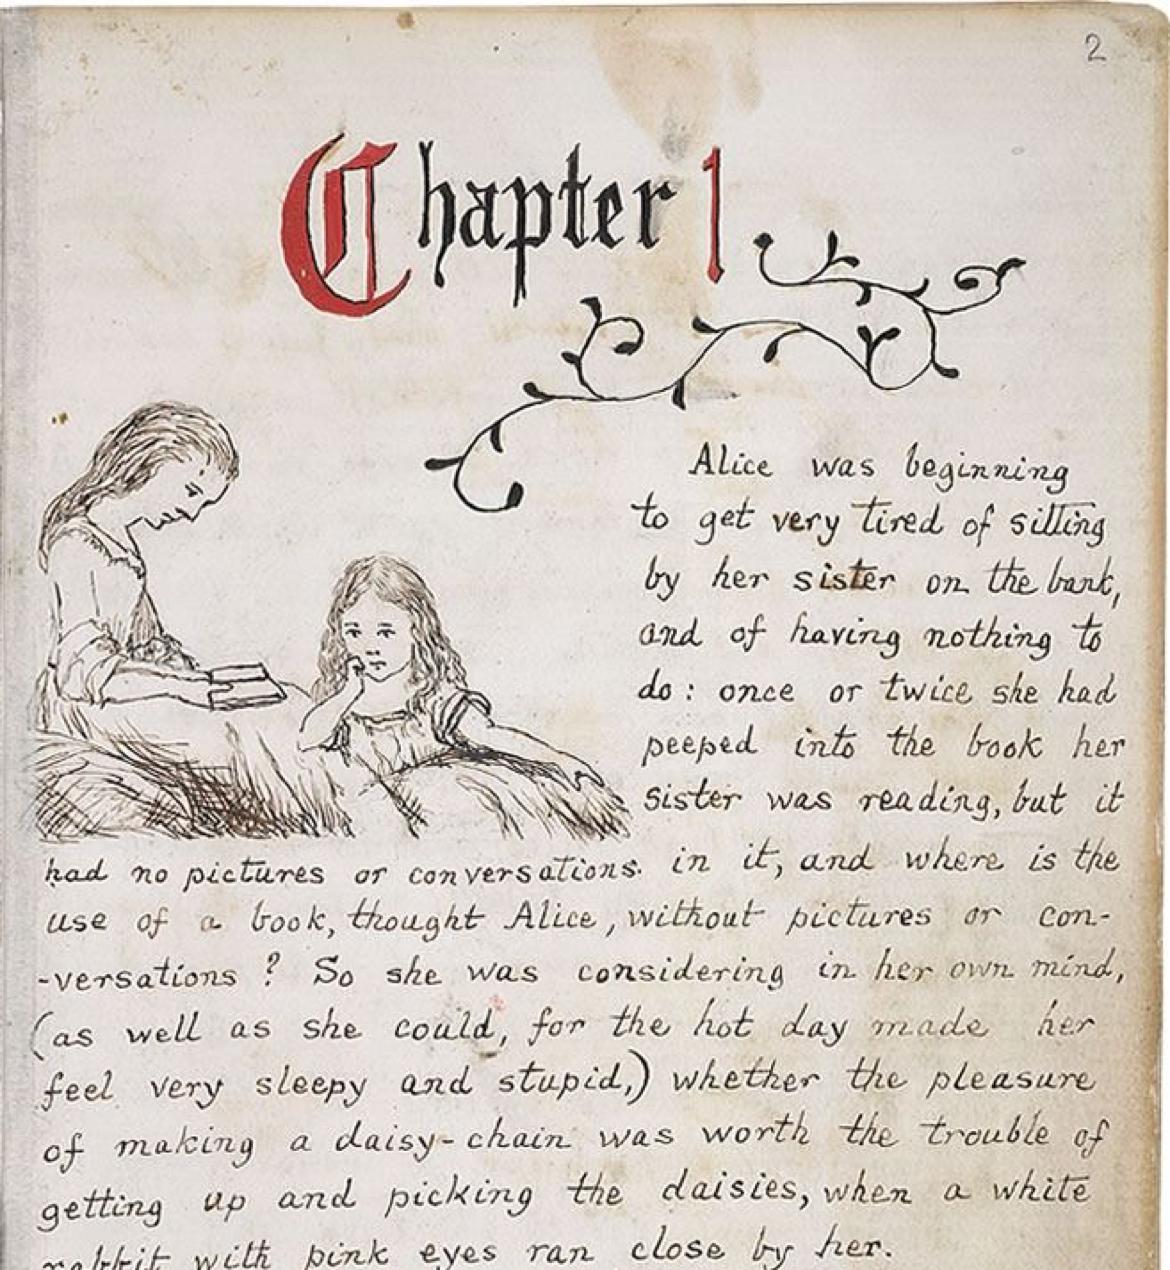 2
Chapter 1
Alice was beginning
to get very tired of sitting
by her sister on the bank,
and of having nothing to
do: once or twice she had
peeped into the book her
sister was reading, but it
had no pictures or conversations. in it, and where is the
use of a book, thought Alice, without pictures or con-
-versations? So she was considering in her own mind,
(as well as she could, for the hot day made her
feel very sleepy and stupid,) whether the pleasure
of making a daisy-chain was worth the trouble of
getting up and picking the daisies, when a white
rabbit with pink eyes ran close by her.